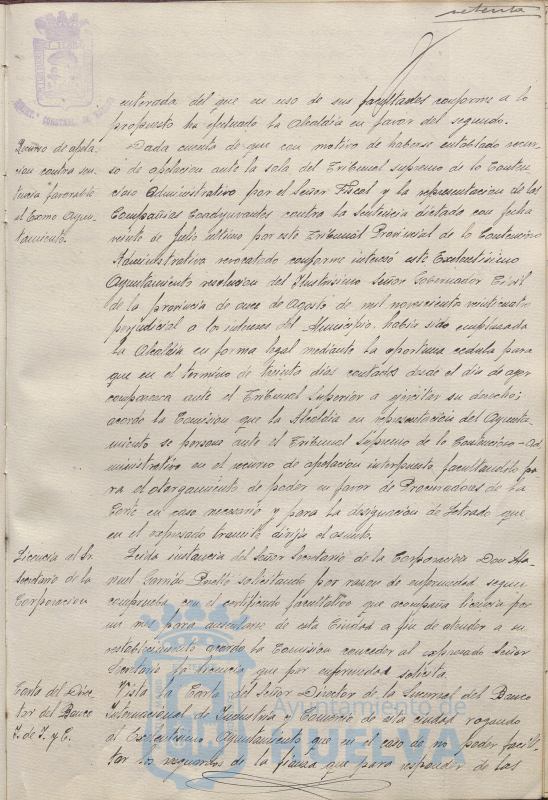 setenta
enterada del que en uso de sus facultades conforme a lo
propuesto ha efectuado la Alcaldia en favor del segundo.
Recurso de apela-
cion contra sen-
tencia favorable
al Excmo Ayun-
tamiento.
Dada cuenta de que con motivo de haberse entablado recur-
so de apelacion ante la sala del Tribunal Supremo de lo Conten-
cioso Administrativo por el Señor Fiscal y la representacion de las
Compañias Coadyuvantes contra la sentencia dictada con fecha
veinte de Julio ultimo por este Tribunal Provincial de lo Contencioso
Administrativo revocatoria conforme interesó este Excelentisimo
Ayuntamiento resolucion del Ilustrisimo Señor Gobernador Civil
de la provincia de once de Agosto de mil novecientos veinticuatro
perjudicial a los intereses del Municipio, habia sido emplazada
la Alcaldia en forma legal mediante la oportuna cedula para
que en el termino de treinta dias contados desde el dia de ayer
comparezca ante el Tribunal Superior a ejercitar su derecho;
acordo la Comision que la Alcaldia en representacion del Ayunta-
miento se persone ante el Tribunal Supremo de lo Contencioso-Ad-
ministrativo en el recurso de apelacion interpuesto facultandole pa-
ra el otorgamiento de poder en favor de Procuradores de la
Corte en caso necesario y para la designacion de Letrado que
en el expresado tramite dirija el asunto.
Licencia al Sr.
Secretario de la
Corporacion
Leida instancia del Señor Secretario de la Corporacion Don Ma-
nuel Garrido Perelló solicitando por razon de enfermedad segun
comprueba con el certificado facultativo que acompaña licencia por
un mes para ausentarse de esta Ciudad a fin de atender a su
restablecimiento acordo la Comision conceder al expresado Señor
Secretario la licencia que por enfermedad solicita.
Carta del Direc-
tor del Banco
I. de I. y C.
Vista la Carta del Señor Director de la Sucursal del Banco
Internacional de Industria y Comercio de esta ciudad rogando
al Excelentisimo Ayuntamiento que en el caso de no poder facili-
tar los resguardos de la fianza que para responder de las
Ayuntamiento de
HUELVA